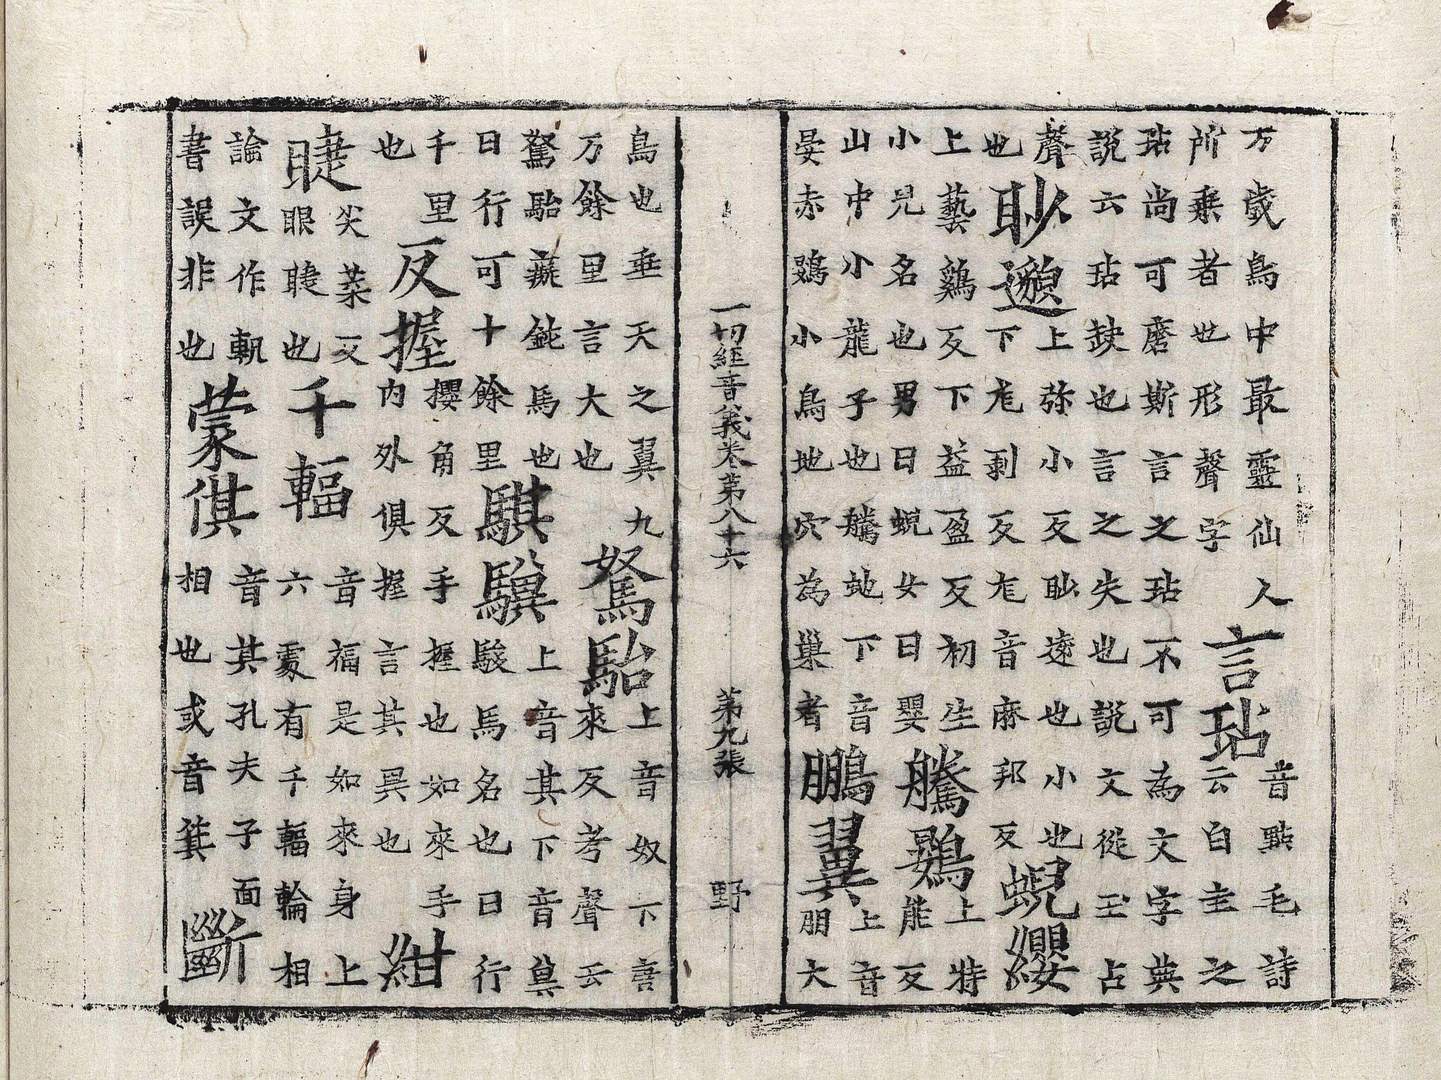 万歲鳥中最靈仙人
所乘者也形聲字
言玷
音點毛詩
云白圭之
玷尚可磨斯言之玷不可為文字典
說云玷缺也言之失也說文從玉占
聲
也
眇邈
上弥小反眇遠也小也
下尨剥反尨音厖邦反
蜆纓
上藝鷄反下益盈反初生
小兒名也男曰蜆女曰嬰
騰鷃
上特
能反
山中小龍子也騰虵下音
晏赤鷃小鳥地穴為巢者
鵬翼
上音
朋大
一切經音義卷第八十六 第九張 野
鳥也垂天之翼九
万餘里言大也
駑駘
上音奴下音
來反考聲云
駑駘癡鈍馬也
日行可十餘里
騏驥
上音其下音兾
駿馬名也日行
千里
也
反握
攖角反手握也如來手
內外俱握言其異也
紺
睫
尖葉反
眼睫也
千輻
音福是如來身上
六處有千輻輪相
論文作䡄
書誤非也
蒙倛
音其孔夫子面
相也或音箕
斷